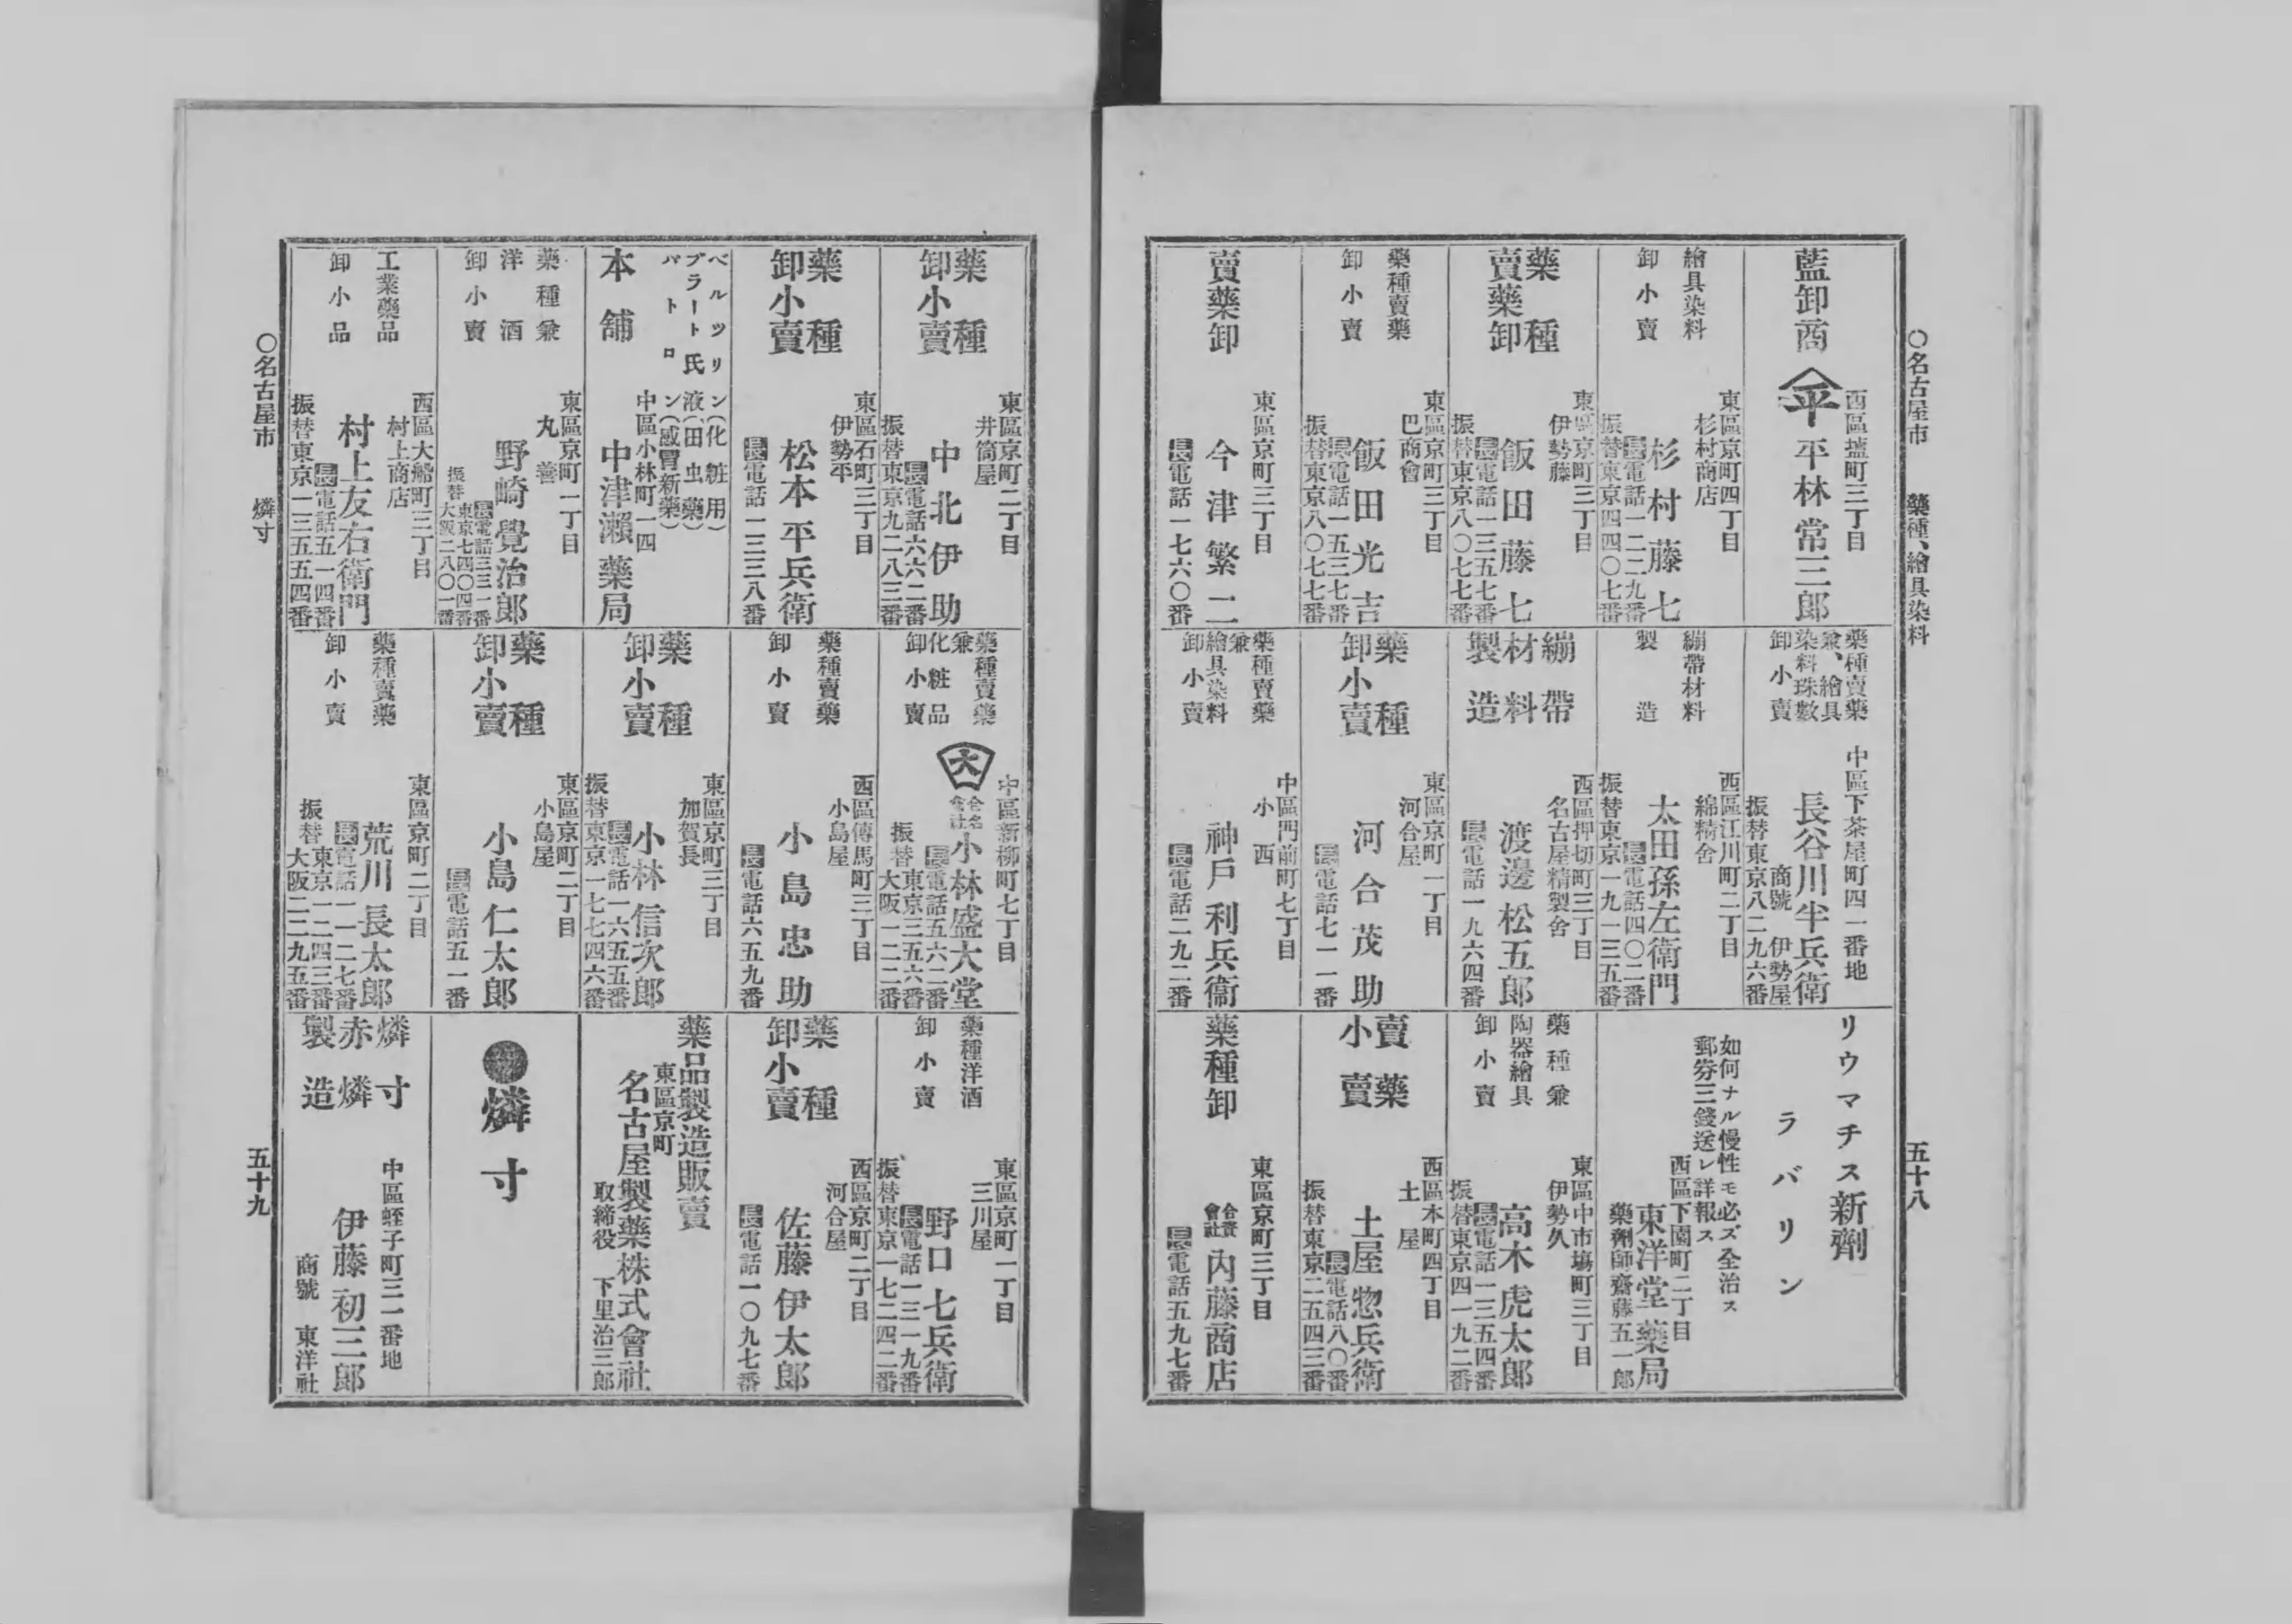 ○名古屋市　藥種、繪具染料
五十八
藍卸商
西區塩町三丁目
平
平林常三郎
繪具染料
卸小賣
東區京町四丁目
杉村商店
杉村藤七
長電話一二二九番
振替東京四四〇七番
藥種
賣藥卸
東區京町三丁目
伊勢藤
飯田藤七
長電話一三五七番
振替東京八〇七七番
藥種賣藥
卸小賣
東區京町三丁目
巴商會
飯田光吉
長電話一五三七番
振替東京八〇七七番
賣藥卸
東區京町三丁目
今津繁二
長電話一七六〇番
藥種賣藥
兼、繪具
染料珠數
卸小賣
中區下茶屋町四一番地
長谷川半兵衛
商號　伊勢屋
振替東京八二九六番
繃帶材料
製造
西區江川町二丁目
綿精舍
太田孫左衛門
長電話四〇二番
振替東京一九一三五番
繃帶
材料
製造
西區押切町三丁目
名古屋精製舍
渡邊松五郎
長電話一九六四番
藥種
卸小賣
東區京町一丁目
河合屋
河合茂助
長電話七一一番
藥種賣藥
兼
繪具染料
卸小賣
中區門前町七丁目
小西
神戶利兵衞
長電話二九二番
リウマチス新劑
ラバリン
如何ナル慢性モ必ズ全治ス
郵券三錢送レ詳報ス
西區下園町二丁目
東洋堂藥局
藥劑師齋藤五一郎
藥種兼
陶器繪具
卸小賣
東區中市塲町三丁目
伊勢久
高木虎太郎
長電話一三五四番
振替東京四一九二番
賣藥
小賣
西區本町四丁目
土屋
土屋惣兵衛
長電話八〇番
振替東京二五四三番
藥種卸
東區京町三丁目
合資會社
內藤商店
長電話五九七番
藥種
卸小賣
東區京町二丁目
井筒屋
中北伊助
長電話六六二番
振替東京九二八三番
藥種
卸小賣
東區石町三丁目
伊勢平
松本平兵衛
長電話一三三八番
ベルツリン(化粧用)
ブラート氏液(田虫藥)
パトロン(感冒新藥)
本舖
中區小林町一四
中津瀨藥局
藥種兼
洋酒
卸小賣
東區京町一丁目
丸善
野崎覺治郎
長電話三三一番
振替　東京七四〇四番
大阪二八〇一番
工業藥品
卸小品
西區大船町三丁目
村上商店
村上友右衛門
長電話五一四番
振替東京一三五五四番
藥種賣藥
兼
化粧品
卸小賣
中區新柳町七丁目
大
合名會社
小林盛大堂
長電話五六二番
振替　東京三五六番
大阪一二二番
藥種賣藥
卸小賣
西區傳馬町三丁目
小島屋
小島忠助
長電話六五九番
藥種
卸小賣
東區京町三丁目
加賀長
小林信次郎
長電話一六五五番
振替東京一七七四六番
藥種
卸小賣
東區京町二丁目
小島屋
小島仁太郎
長電話五一番
藥種賣藥
卸小賣
東區京町二丁目
荒川長太郎
長電話一一二七番
振替　東京一二四三番
大阪二二九五番
藥種洋酒
卸小賣
東區京町一丁目
三川屋
野口七兵衛
長電話一三一九番
振替東京一七二四二番
藥種
卸小賣
西區京町二丁目
河合屋
佐藤伊太郎
長電話一〇九七番
藥品製造販賣
東區京町
名古屋製藥株式會社
取締役　下里治三郎
●燐寸
燐寸
赤燐
製造
中區蛭子町三一番地
伊藤初三郎
商號　東洋社
○名古屋市　燐寸
五十九